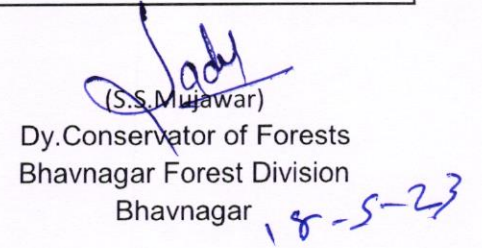 (S.S.Mujawar)
Dy.Conservator of Forests
Bhavnagar Forest Division
Bhavnagar
18-5-23